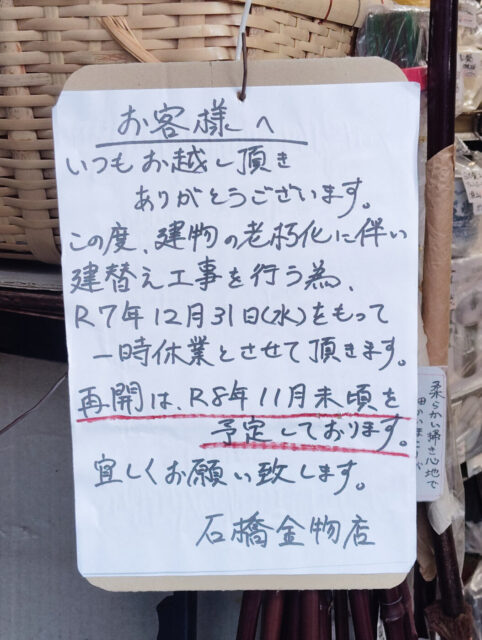 お客様へ
いつもお越し頂き
ありがとうございます。
この度、建物の老朽化に伴い
建替え工事を行う為、
R7年12月31日(水)をもって
一時休業とさせて頂きます。
再開は、R8年11月末頃を
予定しております。
宜しくお願い致します。
石橋金物店
柔らかい掃き心地で